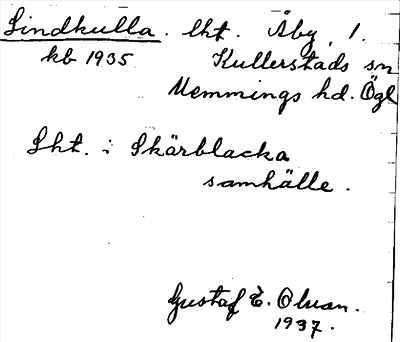 Lindkulla. lht. Åby, 1.
kb 1935 Kullerstads sn
Memmings hd. Ögl
Lht. i Skärblacka
samhälle.
Gustaf E. Olson.
1937.